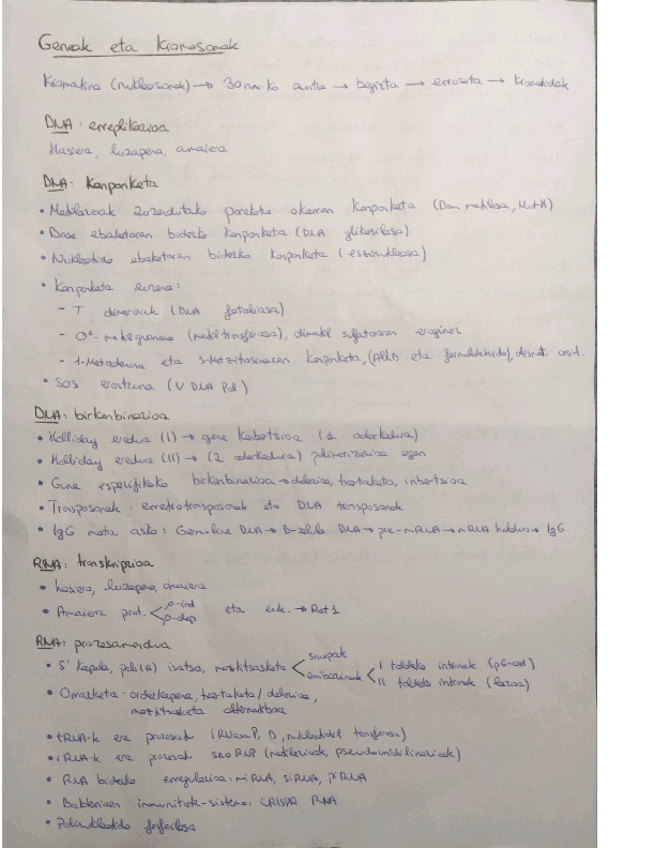 Geneak eta Kromosomak
Kromatina (nukleosomak) → 30 nm-ko zuntza → begizta → erroseta → kromatidak
DNA: erreplikazioa
Hasiera, luzapena, amaiera
DNA: Konponketa
• Metilazioak zuzendutako parekatze okerren konponketa (Dam metilasa, MutH)
• Base ebaketaren bidezko konponketa (DNA glikosilasa)
• Nukleotido ebaketaren bidezko konponketa (eszinukleasa)
• Konponketa zuzena:
- T dimeroak (DNA fotoliasa)
- O⁶-metilguanina (metiltransferasa), dimetil sulfatoaren eraginez
- 1-Metiladenina eta 3-Metilzitosinaren konponketa, (AlkB eta formaldehido), desnat. oxid.
• SOS erantzuna (V DNA Pol)
DNA: birkonbinazioa
• Holliday eredua (I) → gene konbertsioa (1 adarkadura)
• Holliday eredua (II) → (2 adarkadura) polimerizazioa egon
• Gune espezifikoko birkonbinazioa → delezioa, txertaketa, inbertsioa
• Transposonak: erretrotransposonak eta DNA transposonak
• IgG mota asko: Germ-line DNA → B-zelula DNA → pre-mRNA → mRNA heldua → IgG
RNA: transkripzioa
• hasiera, luzapena, amaiera
• Amaiera prok. < ρ-ind / ρ-dep eta euk. → Rat1
RNA: prozesamendua
• 5' kapela, poli(A) isatsa, moztitsasketa < snurpak / erribozimak < I taldeko intronak (pG-OH) / II taldeko intronak (lazoa)
• Orraketa: ordezkapena, txertaketa/delezioa,
moztitsasketa alternatiboa
• tRNA-k ere prozesatu (RNasa P, D, nukleotidil transferasa)
• rRNA-k ere prozesatu snoRNP (metilazioak, pseudouridilazioak)
• RNA bidezko erregulazioa: miRNA, siRNA, piRNA
• Bakterioen immunitate-sistema: CRISPR RNA
• Polinukleotido fosforilasa